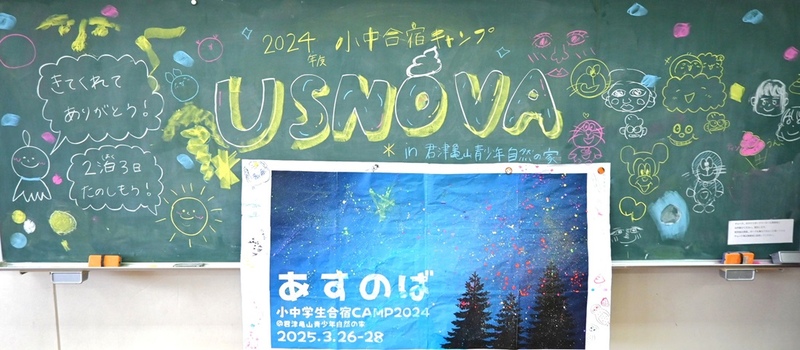 2024年度 小中合宿キャンプ
USNOVA
in 君津亀山青少年自然の家
きてくれて
ありがとう!
2泊3日
たのしもう!
あすのば
小中学生合宿CAMP2024
@君津亀山青少年自然の家
2025.3.26-28